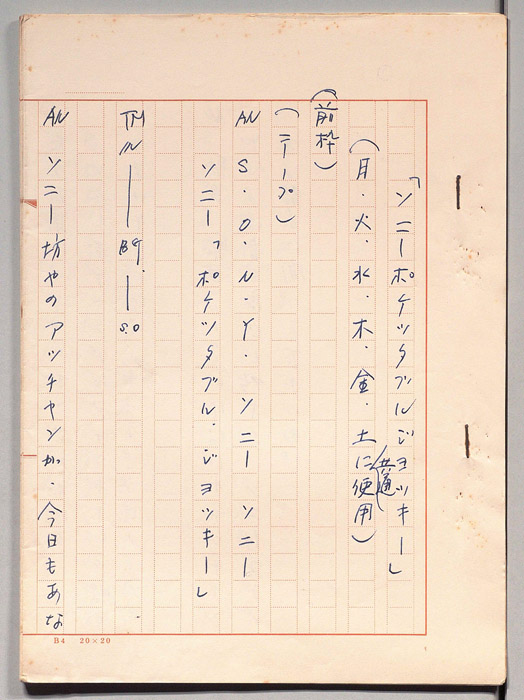 「ソニーポケッタブルジョッキー」
（月・火・水・木・金・土に共通使用）
（前枠）
（テープ）
AN S・O・N・Y・ソニー ソニー
ソニー「ポケッタブル・ジョッキー」
TM IN ── BG ── S.O
AN ソニー坊やのアッチャンが、今日もあな
B4 20×20